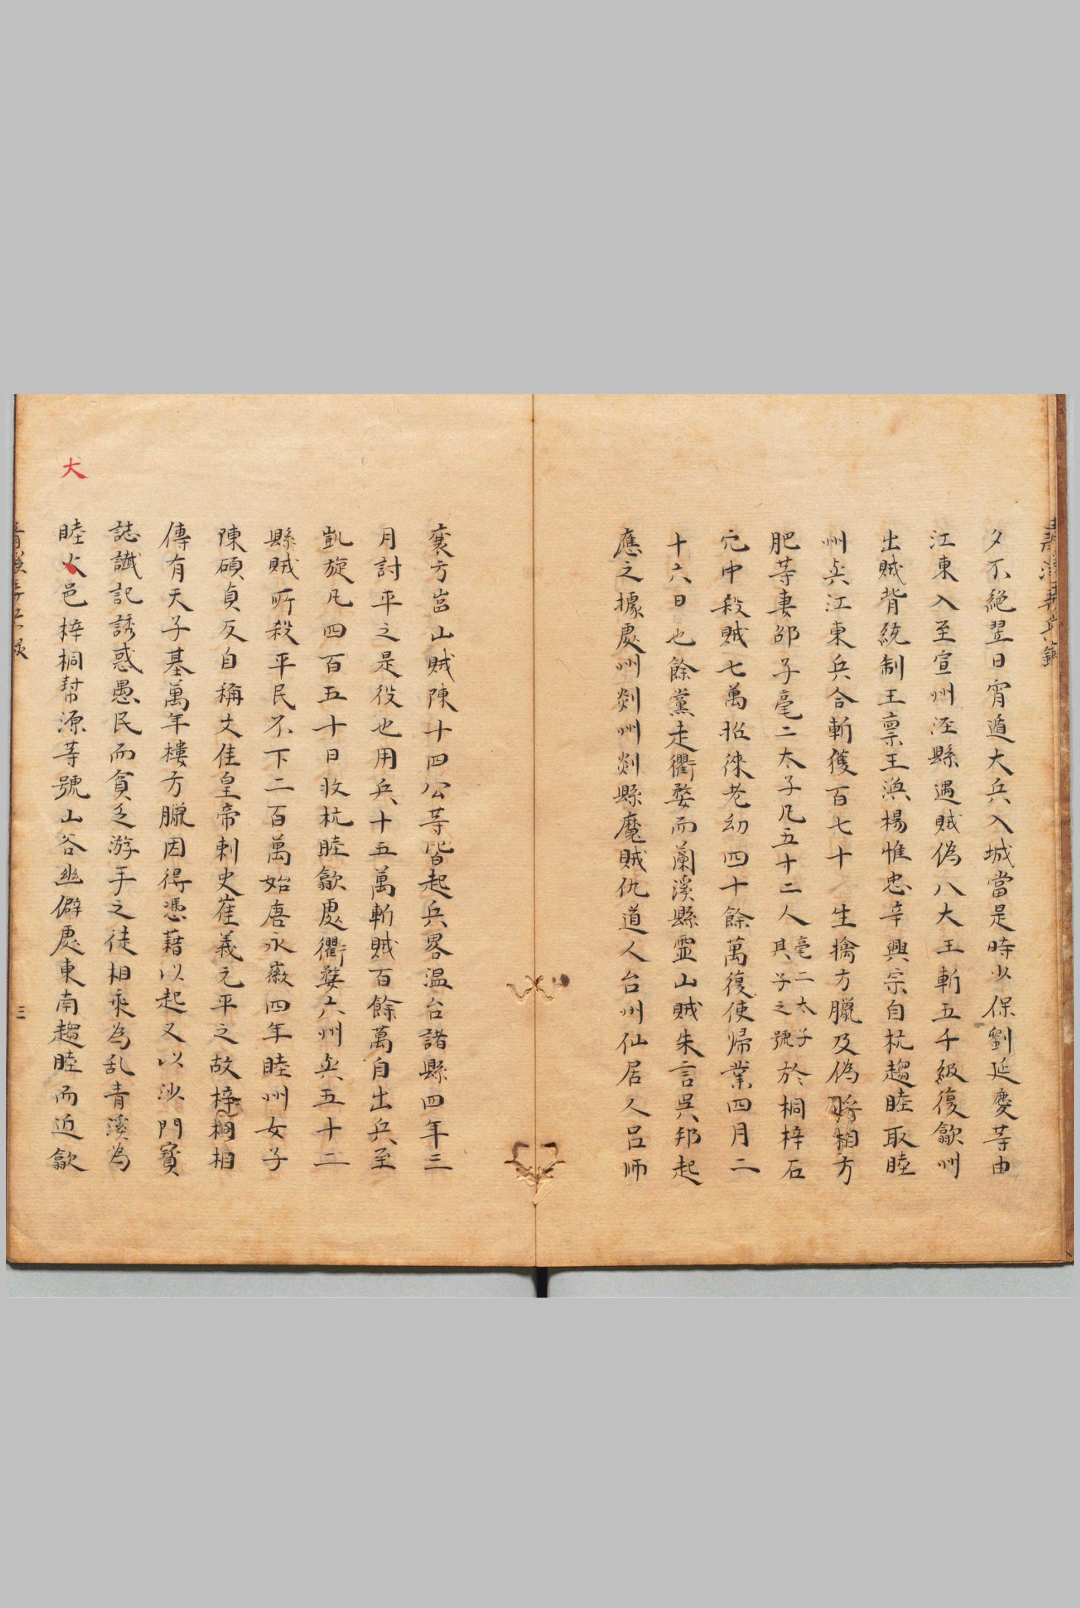 夕不絕翌日宵遁大兵入城當是時少保劉延慶等由
江東入至宣州涇縣遇賊偽八大王斬五千級復歙州
出賊背統制王稟王渙楊惟忠辛興宗自杭趨睦取睦
州與江東兵合斬獲百七十 生擒方臘及偽將相方
肥等妻邵子毫二太子凡五十二人毫二太子其子之號於桐梓石
穴中殺賊七萬招徠老幼四十餘萬復使歸業四月二
十六日也餘黨走衢婺而蘭溪縣靈山賊朱言吳邦起
應之據處州剡州剡縣魔賊仇道人台州仙居人呂師
褱方岩山賊陳十四公等皆起兵畧温台諸縣四年三
月討平之是役也用兵十五萬斬賊百餘萬自出兵至
凱旋凡四百五十日收杭睦歙處衢婺六州與五十二
縣賊所殺平民不下二百萬始唐永徽四年睦州女子
陳碩貞反自稱文佳皇帝刺史崔義元平之故梓桐相
傳有天子基萬年樓方臘因得憑藉以起又以沙門寳
誌讖記誘惑愚民而貧乏游手之徒相乘為乱青溪為
大
睦火邑梓桐幇源等號山谷幽僻處東南趨睦而近歙
三